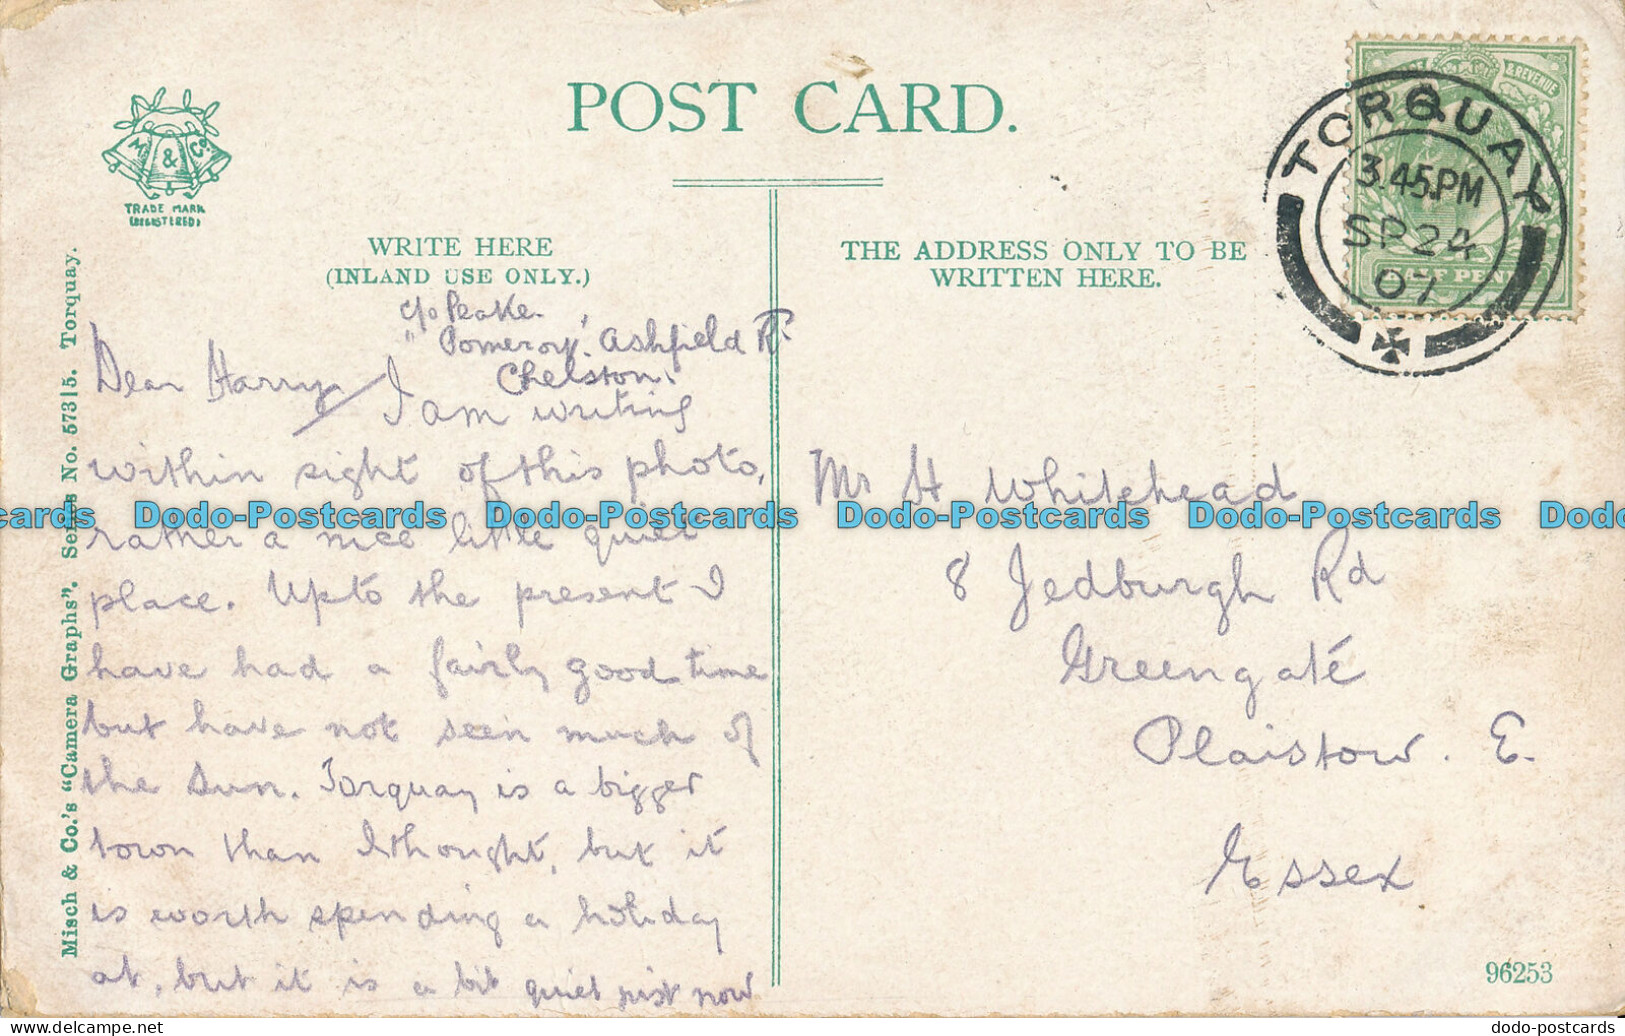 POST CARD.
M. & Co.
TRADE MARK
(REGISTERED)
WRITE HERE
(INLAND USE ONLY.)
THE ADDRESS ONLY TO BE
WRITTEN HERE.
& REVENUE
HALF PENNY
TORQUAY
3.45PM
SP 24
07
Misch & Co.'s "Camera Graphs". Series No. 573|5. Torquay.
c/o Peake.
"Pomeroy". Ashfield Rd.
Chelston.
Dear Harry, I am writing
within sight of this photo,
rather a nice little quiet
place. Up to the present I
have had a fairly good time
but have not seen much of
the sun. Torquay is a bigger
town than I thought, but it
is worth spending a holiday
at, but it is a bit quiet just now
Mr H Whitehead
8 Jedburgh Rd
Greengate
Plaistow. E.
Essex
96253
cards Dodo-Postcards Dodo-Postcards Dodo-Postcards Dodo-Postcards Dodo
www.delcampe.net
dodo-postcards